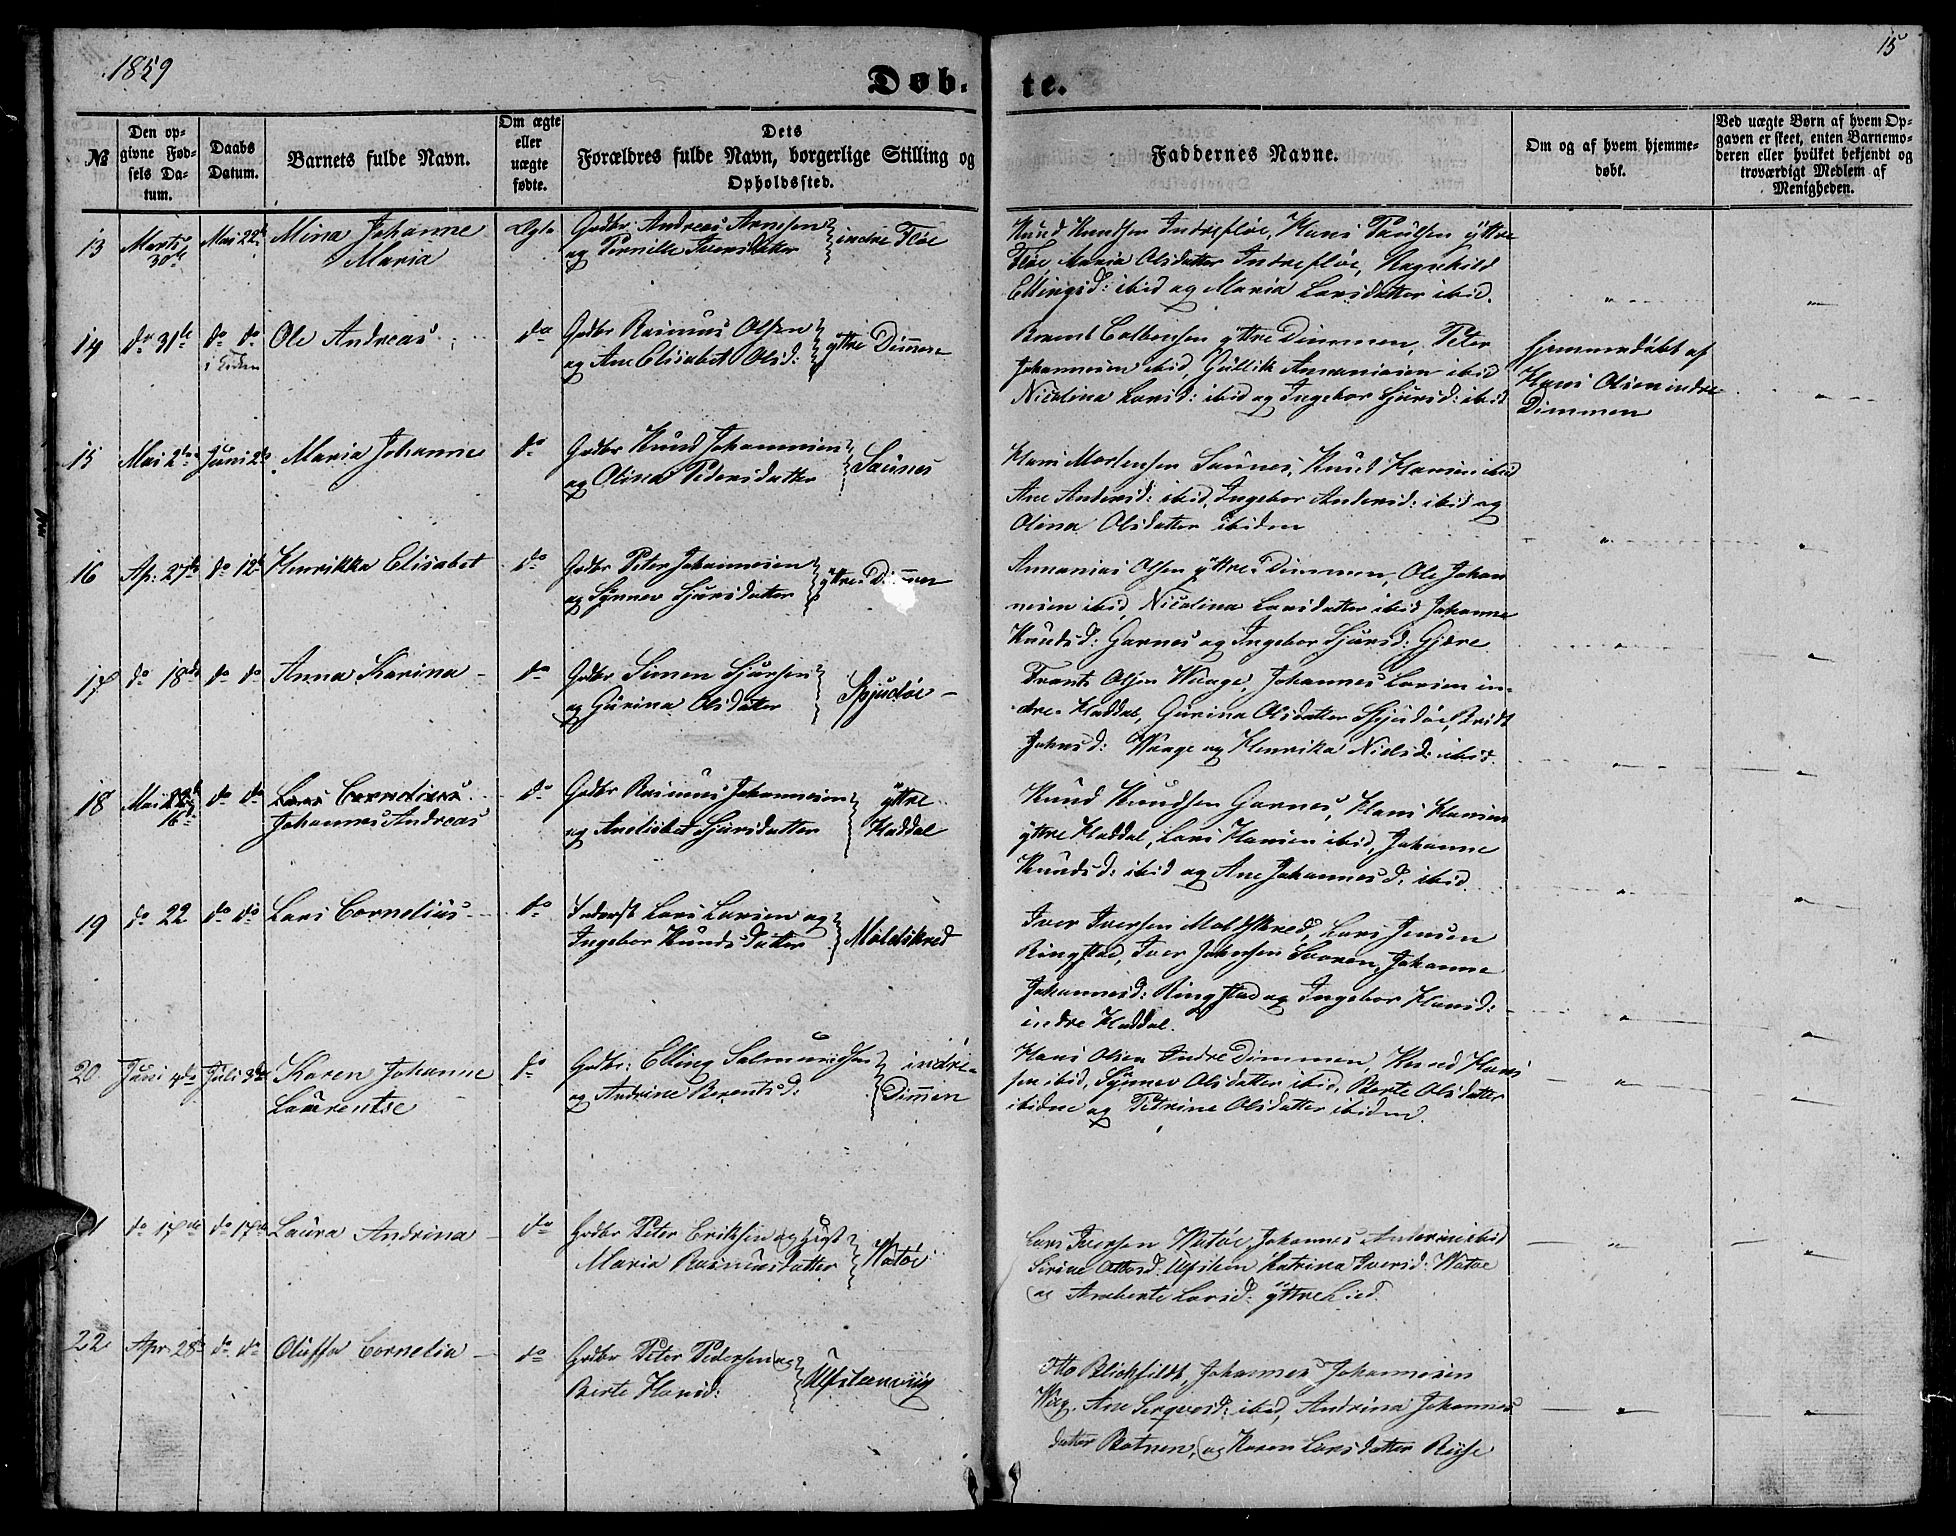 1859
15
Døb-
te.
№
Den op-
givne Fød-
sels Da-
tum.
Daabs
Datum.
Barnets fulde Navn.
Om ægte
eller
uægte
fødte.
Dets
Forældres fulde Navn, borgerlige Stilling og
Opholdssted.
Faddernes Navne.
Om og af hvem hjemme-
døbt.
Ved uægte Børn af hvem Op-
gaven er skeet, enten Barnemo-
deren eller hvilket bekjendt og
troværdigt Medlem af
Menigheden.
13 Marts 30te Mai 22de Mina Johanne
Maria
Ægte
Gadbr Andreas Arnesen
og Pernille Iversdatter
indre Fløe
Knud Knudsen Indrefløe, Hans Paulsen yttre
Fløe, Maria Olsdatter Indrefløe, Ragnhild
Ellingsd: ibid og Maria Larsdatter ibid.
14 do 31te do do
Ole Andreas
do
Gadbr Rasmus Olsen
og Ane Elisabet Olsd:
yttre Dimmen
yttre Dimmen, Peter
Johannesen ibid, Gullik Ananiasen ibid
Nicolina Larsd: ibid og Ingebor Sjursd: ibid
hjemmedøbt af
Hans Olsen indre
Dimmen
15 Mai 2den Juni 2den Maria Johanne
do
Gadbr Knud Johannesen
og Olina Pedersdatter
Saunes
Hans Mortensen Saunes, Knud Hansen ibid
Ane Andersd: ibid, Ingebor Andersd: ibid og
Olina Olsdatter ibidem
16 Ap. 27de do 12te Henrikka Elisabet
do
Gadbr Peter Johannesen
og Synnev Sjursdatter
yttre Dimmen
Annanias Olsen yttre Dimmen, Ole Johan
nesen ibid, Nicolina Larsdatter ibid Johanne
Knudsd: Garnes og Ingebor Sjursd: Gjære
17 do 18de do do Anna Karina
do
Gadbr Simen Sjursen
og Gurina Olsdatter
Spjudøe
Frants Olsen Waage, Johannes Larsen in-
dre Haddal, Gurina Olsdatter Spjudøe, Britt
Johnsd: Waage og Henrika Nielsd: ibid.
18 Mai 16 do do Lars Cornelius
Johannes Andreas
do
Gadbr Rasmus Johannesen
og Anelisbet Sjursdatter
yttre
Haddal
Knud Knudsen Garnes, Hans Hansen
yttre Haddal, Lars Hansen ibid, Johanne
Knudsd: ibid og Ane Johannesd: ibid.
19 do 22 do do Lars Cornelius
do
Inderst Lars Larsen og
Ingebor Knudsdatter
Moldskred
Iver Iversen Moldskred, Lars Jensen
Ringstad, Iver Johnsen Svoren, Johanne
Johannesd: Ringstad og Ingebor Hansd:
indre Haddal.
20 Juni 4de Juli 3de Karen Johanne
Laurentse
do
Gadbr: Elling Salmundsen
og Andrine Berentsd:
indre
Dimmen
Hans Olsen Indre Dimmen, Knud Han
sen ibid, Synnev Olsdatter ibid, Berte Olsdatter
ibidem og Petrine Olsdatter ibidem.
1 do 17de do 17de Laura Andrina
do
Gadbr Peter Eriksen og
Maria Rasmusdatter
Hatøe
Lars Iversen Hatøe, Johannes Andersen ibid
Sirine Ottosd: Ulfsten Katrina Iversd: Hatøe
og Aneberte Larsd: yttre Lied.
22 Apr. 28de do do Oluffa Cornelia
do
Gadbr Peter Pedersen og
Berte Hansd:
Ulfstenviig
Otto Blichfeldt, Johannes Johannesen
Wiig, Ane ibid, Andrina Johannes
datter Botnen, og Karen Larsdatter Riise